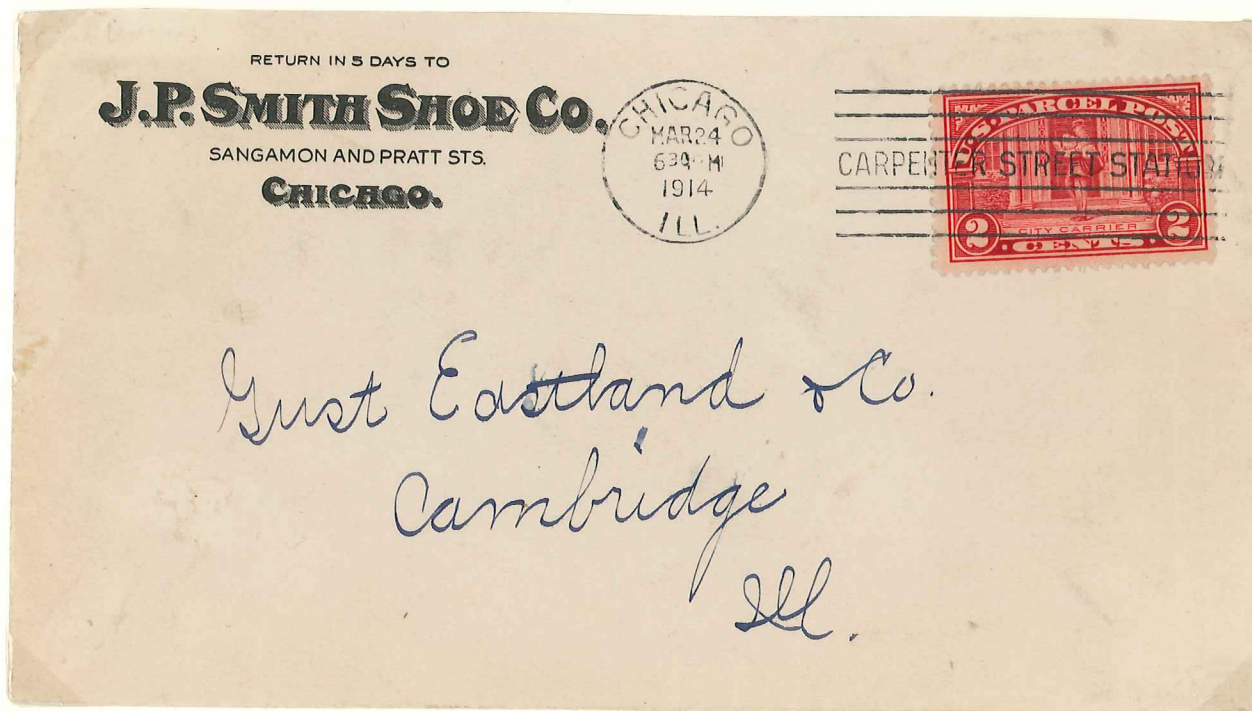 RETURN IN 5 DAYS TO
J.P. SMITH SHOE CO.
SANGAMON AND PRATT STS.
CHICAGO.
CHICAGO
MAR 24
1914
ILL.
CARPENTER STREET STATION
U.S. PARCEL POST
CITY CARRIER
2 CENTS 2
Gust Eastland & Co.
Cambridge
Ill.